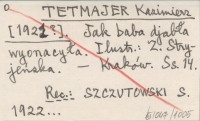 TETMAJER Kazimierz
[1921?]. Jak baba djabła
wyonacyła. Ilustr.: Z. Stry-
jeńska. – Kraków. Ss. 14.
Rec.: SZCZUTOWSKI S.
1922...